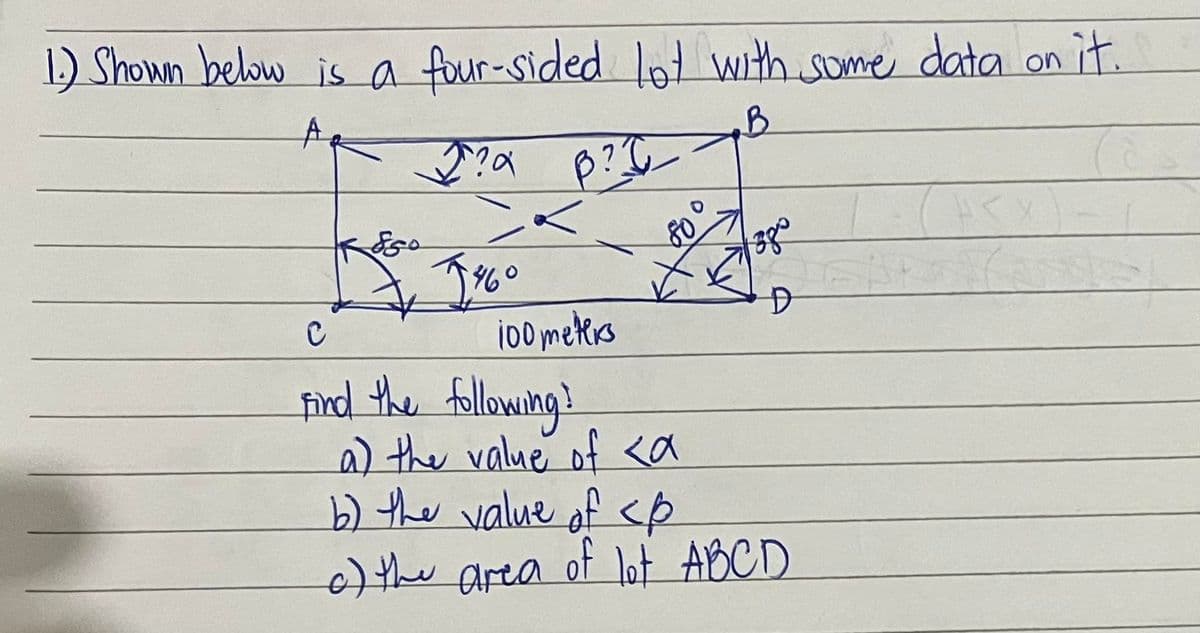 1.) Shown below is a four-sided lot with some data on it.
A B
?α β?
850 80° 38°
46°
C 100 meters D
Find the following:
a) the value of <α
b) the value of <β
c) the area of lot ABCD